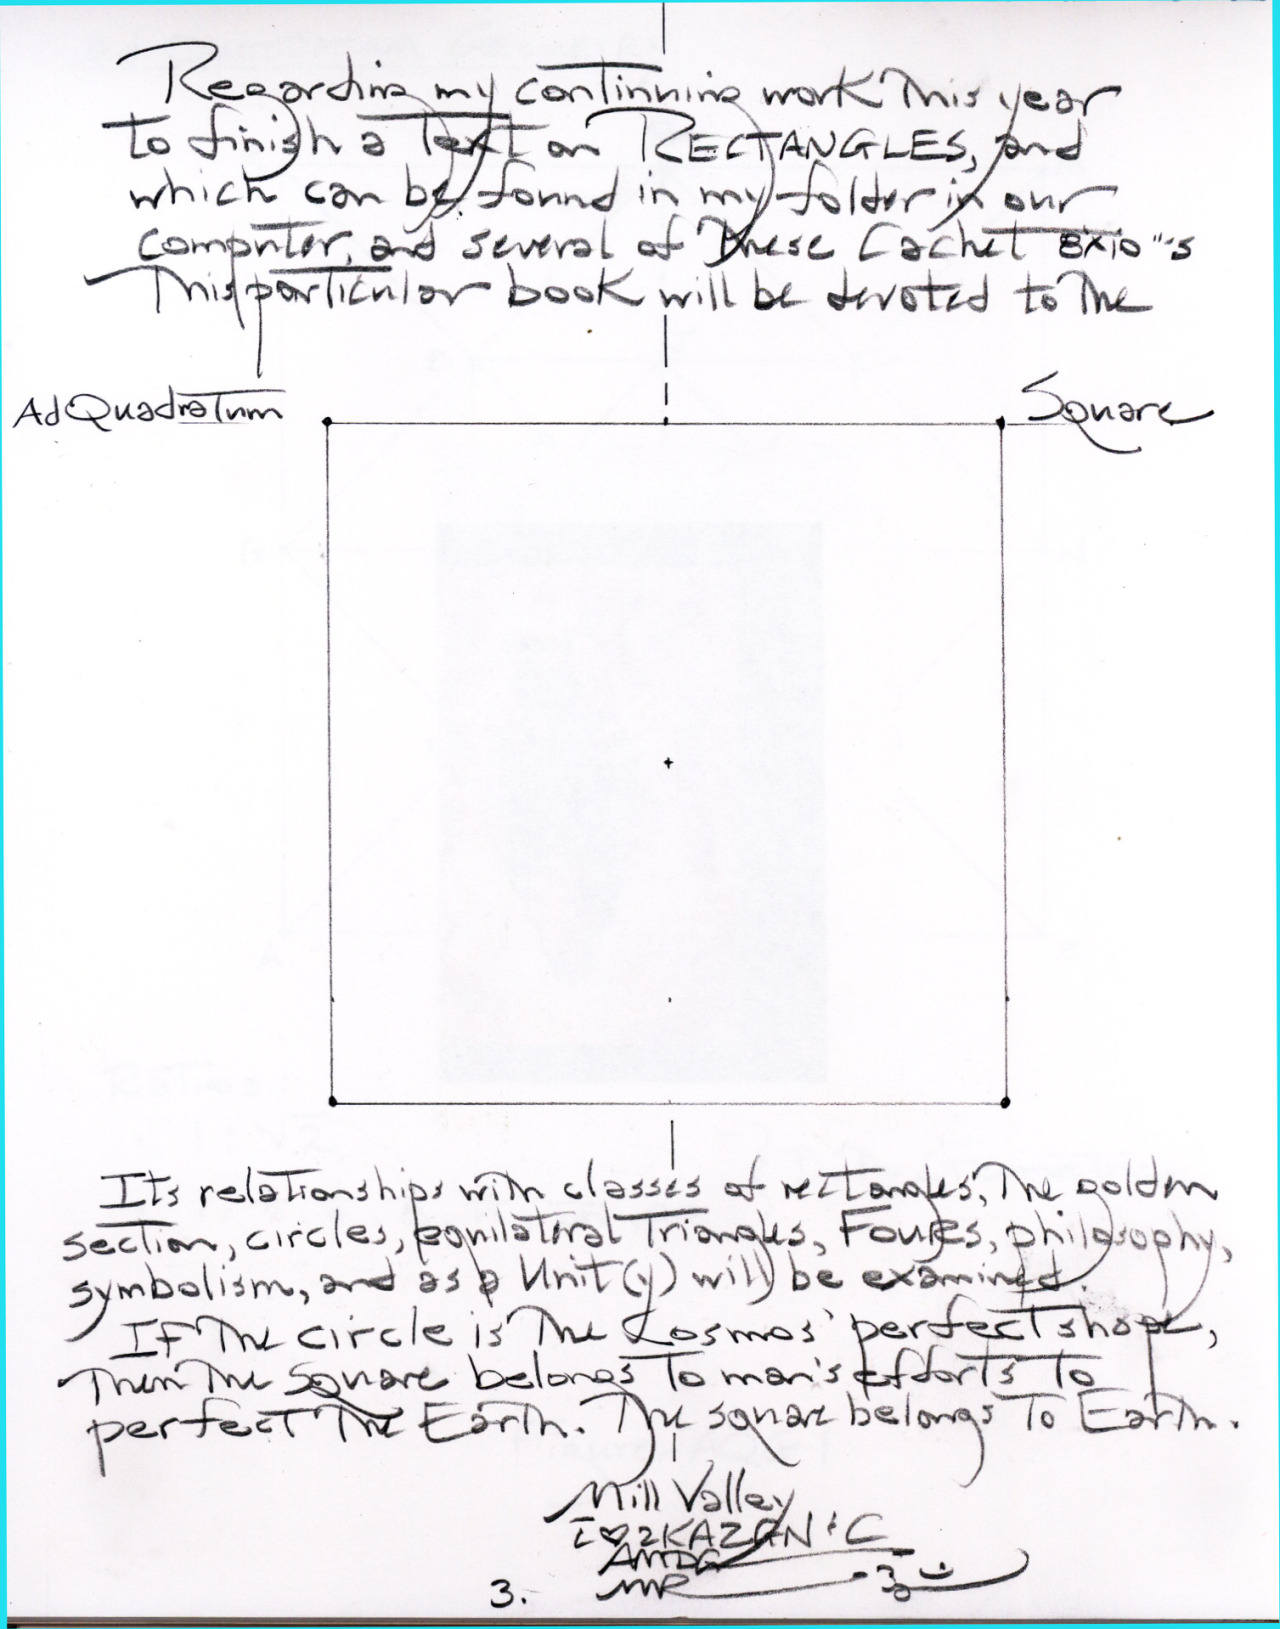 Regarding my continuing work This year
to finish a Text on RECTANGLES, and
which can be found in my folder in our
computer, and several of These Cachet 8x10"s
This particular book will be devoted to The
AdQuadraTum
Square
Its relationships with classes of rectangles, The golden
section, circles, equilateral Triangles, Fours, philosophy,
symbolism, and as a Unit(y) will be examined.
If The circle is The Kosmos' perfect shape,
Then The Square belongs To man's efforts To
perfect The Earth. The square belongs To Earth.
Mill Valley
I ♥ 2KAZAN + C
AMDG
MR
3.